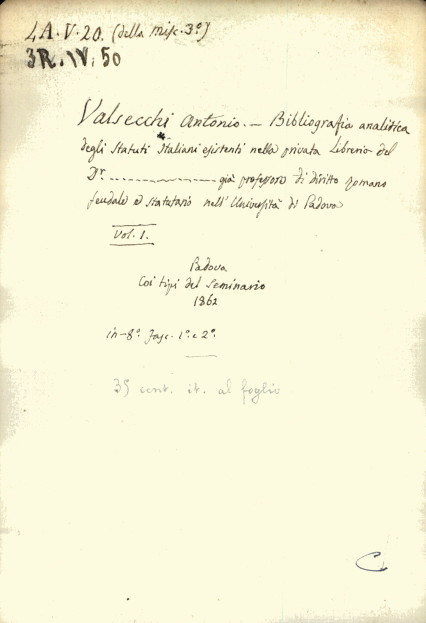 4A.V.20. (della Misc. 3ª)
3R.IV.50
Valsecchi Antonio. — Bibliografia analitica
degli Statuti Italiani esistenti nella privata Libreria del
Dr ........................ già professore di diritto romano
feudale e statutario nell'Università di Padova
Vol. 1.
Padova
Coi tipi del Seminario
1862
in-8° fasc. 1° e 2°.
35 cent. it. al foglio
C